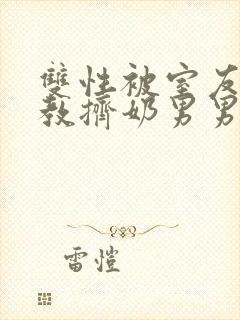 雙性被室友
教擠奶男男
雷愷